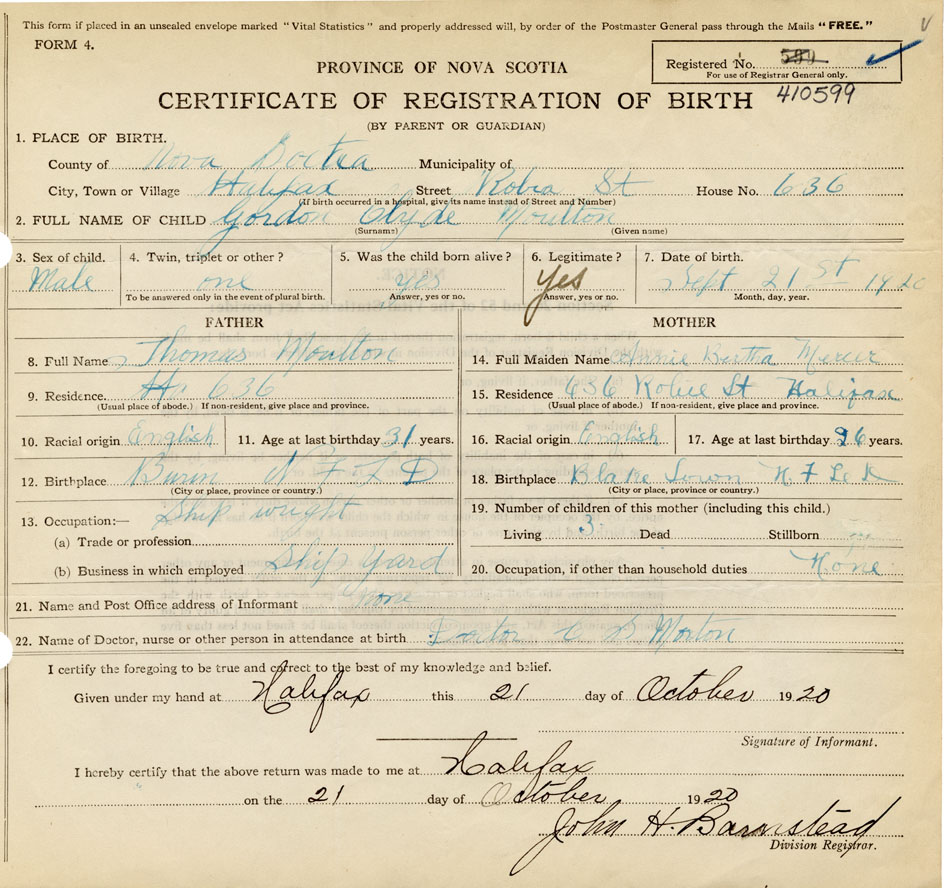 This form if placed in an unsealed envelope marked "Vital Statistics" and properly addressed will, by order of the Postmaster General pass through the Mails "FREE."
FORM 4.
Registered No. 589
For use of Registrar General only.
410599
PROVINCE OF NOVA SCOTIA
CERTIFICATE OF REGISTRATION OF BIRTH
(BY PARENT OR GUARDIAN)
1. PLACE OF BIRTH.
County of Nova Soctia Municipality of
City, Town or Village Halifax Street Robia St House No. 636
(If birth occurred in a hospital, give its name instead of Street and Number)
2. FULL NAME OF CHILD Gordon Clyde Moulton
(Surname) (Given name)
3. Sex of child. 4. Twin, triplet or other? 5. Was the child born alive? 6. Legitimate? 7. Date of birth.
Male one yes Yes Sept 21 St 1920
To be answered only in the event of plural birth. Answer, yes or no. Answer, yes or no. Month, day, year.
FATHER MOTHER
8. Full Name Thomas Moulton 14. Full Maiden Name Annie Bertha Mercer
9. Residence. Ha 636 15. Residence 636 Robie St Halifax
(Usual place of abode.) If non-resident, give place and province. (Usual place of abode.) If non-resident, give place and province.
10. Racial origin English 11. Age at last birthday 31 years. 16. Racial origin English 17. Age at last birthday 26 years.
12. Birthplace Burin N F L D 18. Birthplace Blake Town N. F Ld
(City or place, province or country.) (City or place, province or country.)
13. Occupation:— Ship wright 19. Number of children of this mother (including this child.)
(a) Trade or profession. Living 3 Dead Stillborn
(b) Business in which employed Ship Yard 20. Occupation, if other than household duties None
21. Name and Post Office address of Informant None
22. Name of Doctor, nurse or other person in attendance at birth Doctor C S Morton
I certify the foregoing to be true and correct to the best of my knowledge and belief.
Given under my hand at Halifax this 21 day of October 1920
Signature of Informant.
I hereby certify that the above return was made to me at Halifax
on the 21 day of October 1920
John H. Barnstead
Division Registrar.